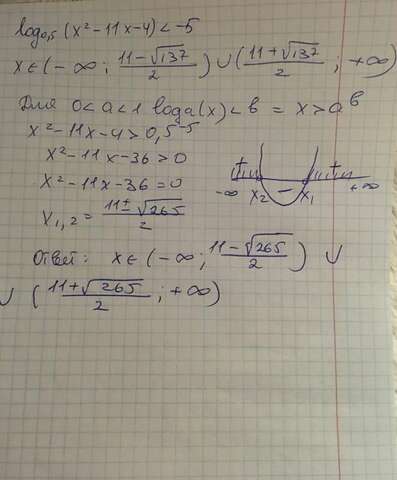 log₀,₅ (x² - 11x - 4) < -5
x ∈ (-∞ ; (11 - √137)/2) ∪ ((11 + √137)/2 ; +∞)
Для 0 < a < 1 logₐ(x) < b = x > a^b
x² - 11x - 4 > 0,5⁻⁵
x² - 11x - 36 > 0
x² - 11x - 36 = 0
x₁,₂ = (11 ± √265)/2
+ - +
-∞ x₂ x₁ +∞
Ответ: x ∈ (-∞ ; (11 - √265)/2) ∪
∪ ((11 + √265)/2 ; +∞)